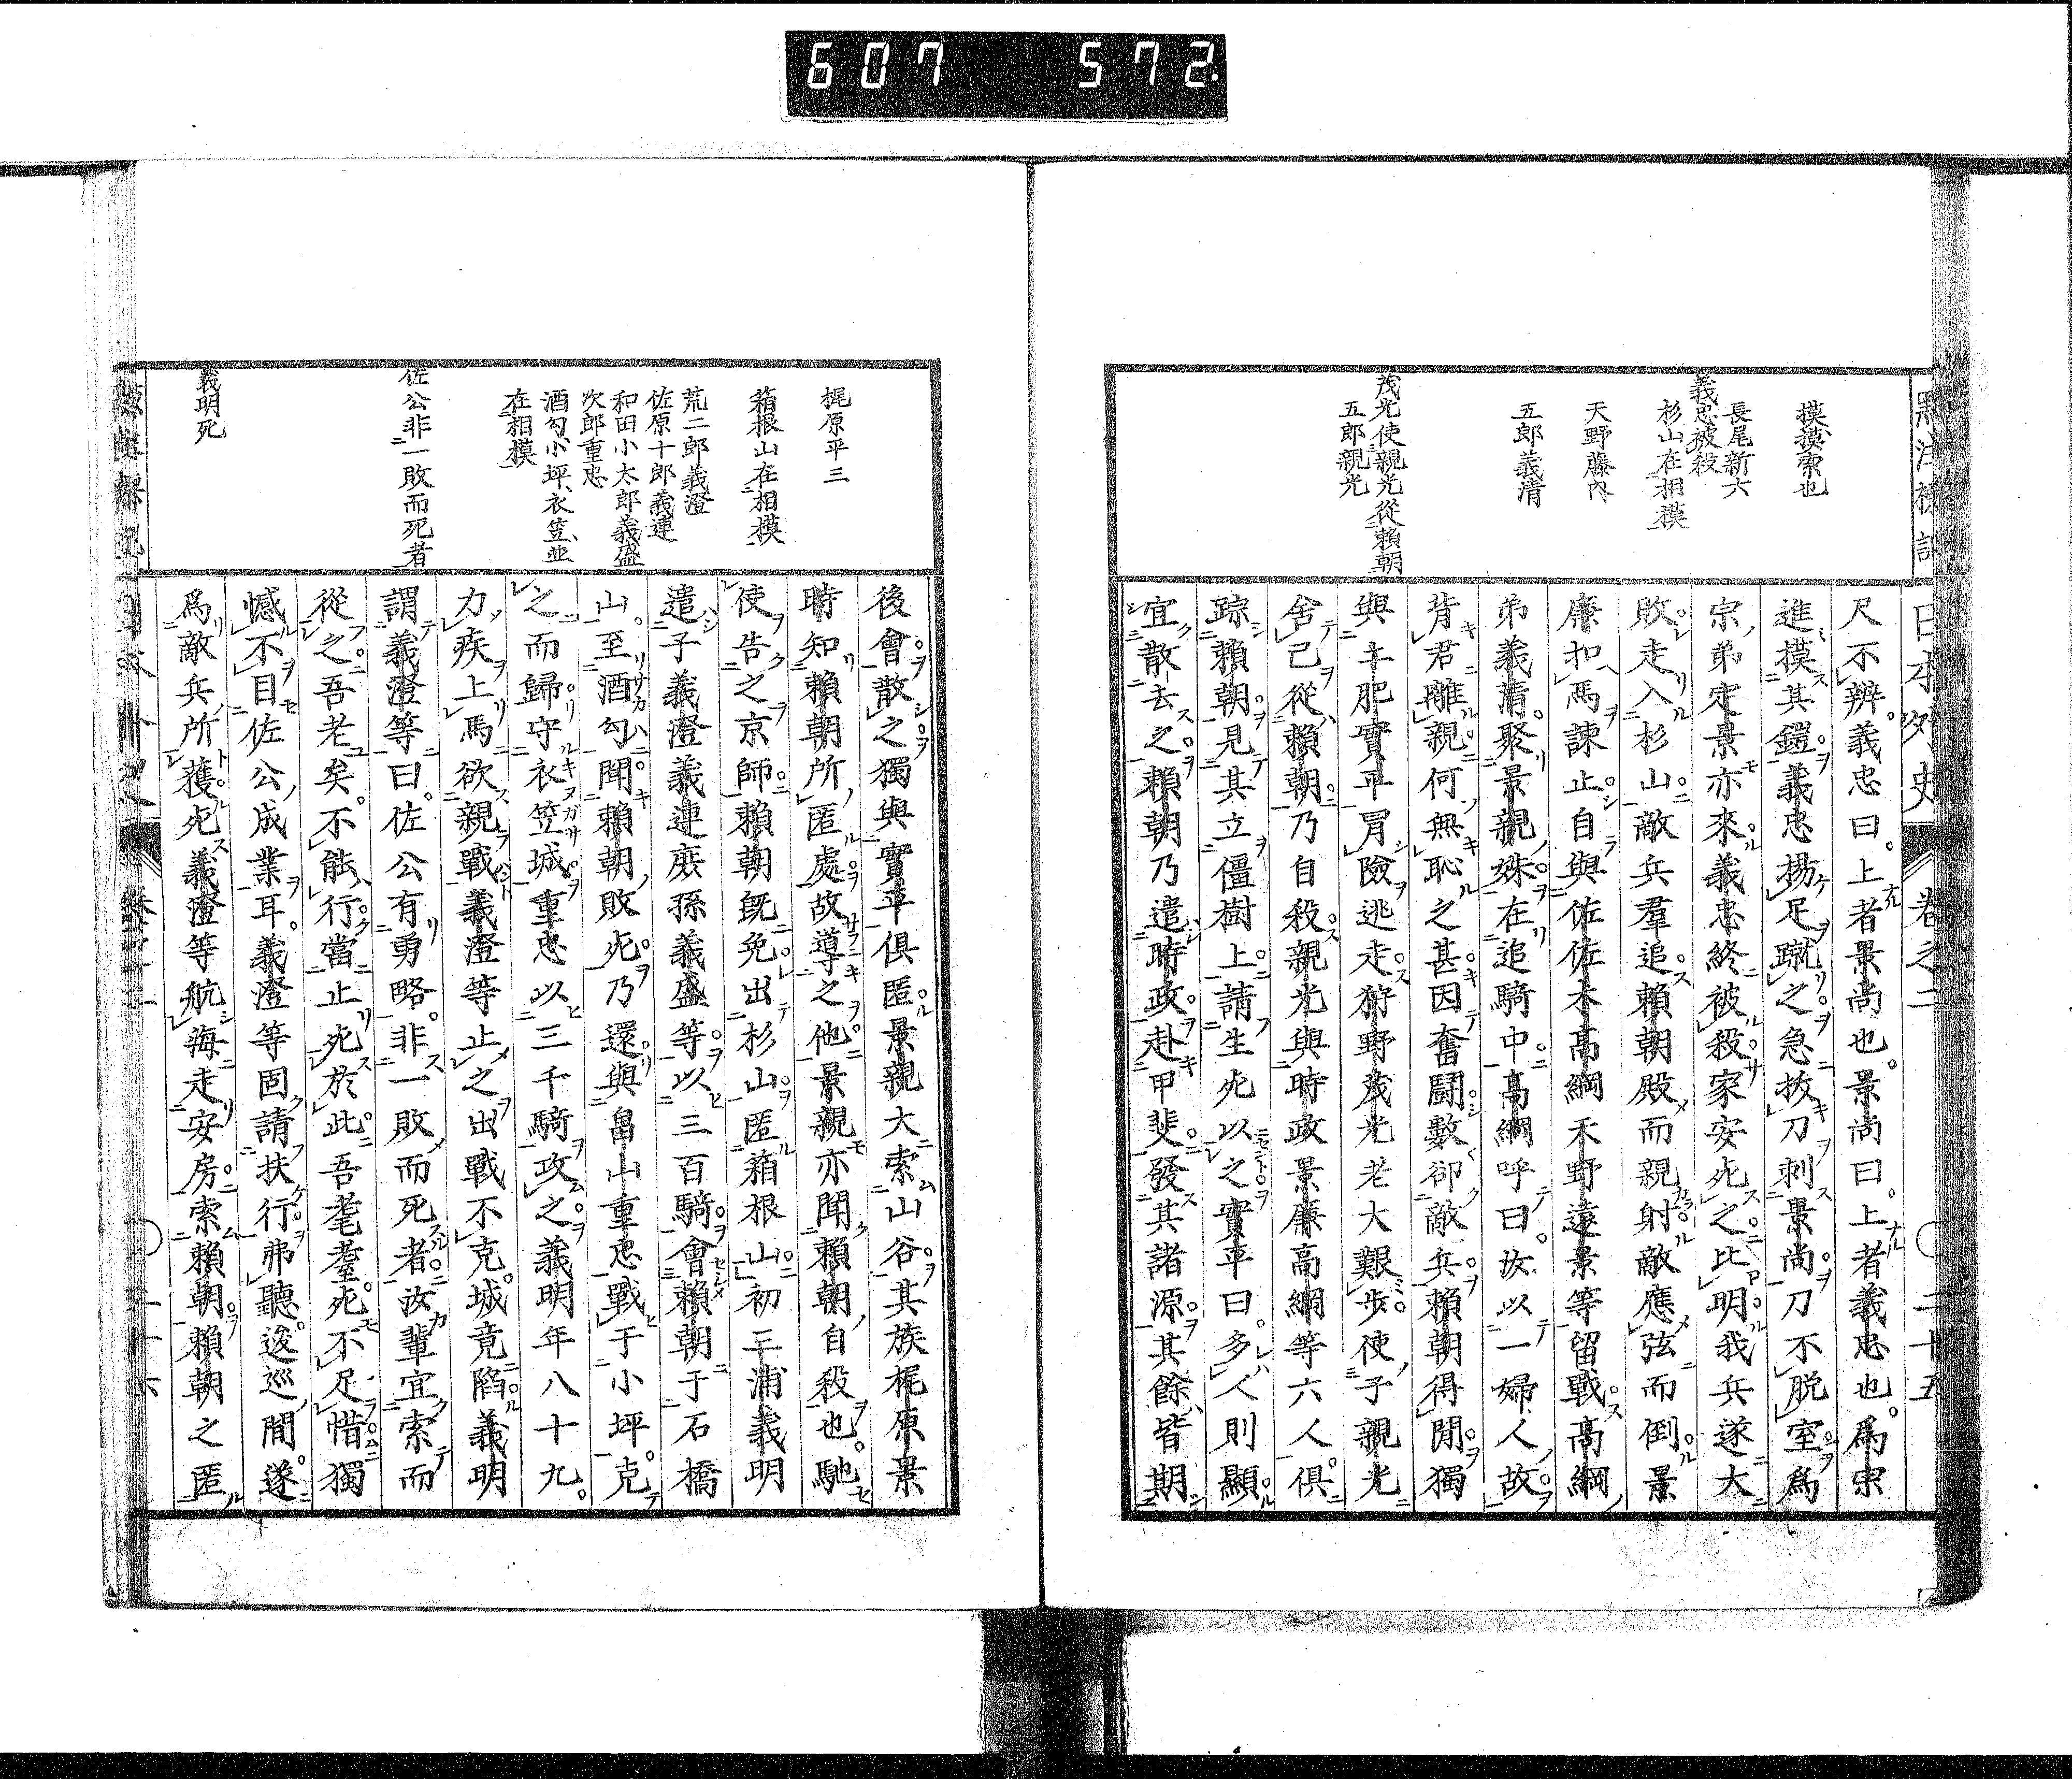 607 572.
日本外史 卷之二 二十五
摸摸索也
長尾新六
義忠被殺
杉山在相模
天野藤内
五郎義清
茂光使親光從賴朝
五郎親光
尺不辨義忠曰上者景尚也景尚曰上者義忠也爲宗
進摸其鎧義忠揚足蹴之急拔刀刺景尚刀不脫室爲
宗弟定景亦來義忠終被殺家安死之比明我兵遂大
敗走入杉山敵兵羣追賴朝殿而親射敵應弦而倒景
廉扣馬諫止自與佐佐木高綱天野遠景等留戰高綱
弟義清聚景親殊在追騎中高綱呼曰汝以一婦人故
背君離親何無恥之甚因奮鬪數卻敵兵賴朝得閒獨
與土肥實平冒險逃走狩野茂光老大艱步使子親光
舍己從賴朝乃自殺親光與時政景廉高綱等六人俱
踪賴朝見其立僵樹上請生死以之實平曰多人則顯
宜散去之賴朝乃遣時政赴甲斐發其諸源其餘皆期
梶原平三
箱根山在相模
荒二郎義澄
佐原十郎義連
和田小太郎義盛
次郎重忠
酒匂、小坪、衣笠、並
在相模
佐公非一敗而死者
義明死
後會散之獨與實平俱匿景親大索山谷其族梶原景
時知賴朝所匿處故導之他景親亦聞賴朝自殺也馳
使告之京師賴朝既免出杉山匿箱根山初三浦義明
遣子義澄義連庶孫義盛等以三百騎會賴朝于石橋
山至酒匂聞賴朝敗死乃還與畠山重忠戰于小坪克
之而歸守衣笠城重忠以三千騎攻之義明年八十九
力疾上馬欲親戰義澄等止之出戰不克城竟陷義明
謂義澄等曰佐公有勇略非一敗而死者汝輩宜索而
從之吾老矣不能行當止死於此吾耄耋死不足惜獨
憾不目佐公成業耳義澄等固請扶行弗聽逡巡間遂
爲敵兵所獲死義澄等航海走安房索賴朝賴朝之匿